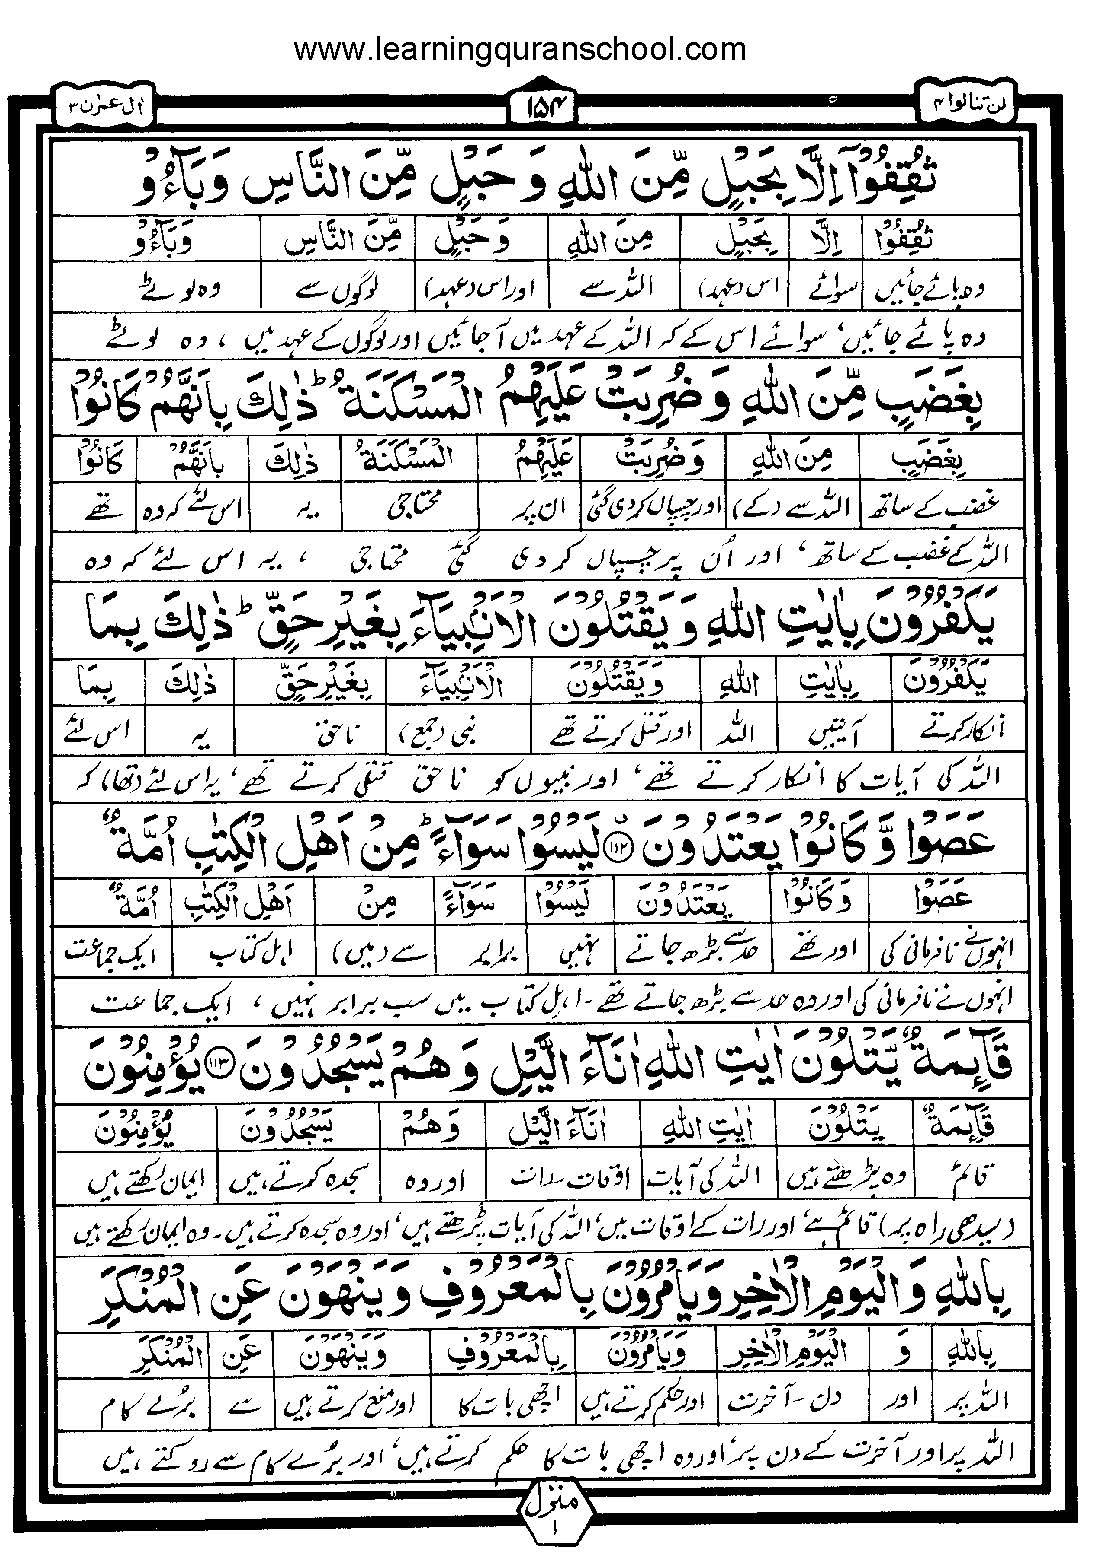 www.learningquranschool.com
لن تنالوا ۴
۱۵۴
اٰل عمرٰن ۳
ثُقِفُوْۤا اِلَّا بِحَبْلٍ مِّنَ اللّٰهِ وَ حَبْلٍ مِّنَ النَّاسِ وَبَآءُوْ
ثُقِفُوْۤا اِلَّا بِحَبْلٍ مِنَ اللّٰهِ وَ حَبْلٍ مِّنَ النَّاسِ وَبَآءُوْ
وہ پائے جائیں سوائے اس (عہد) اللہ سے اور اس (عہد) لوگوں سے وہ لوٹے
وہ پائے جائیں، سوائے اس کے کہ اللہ کے عہد میں آجائیں اور لوگوں کے عہد میں ، وہ لوٹے
بِغَضَبٍ مِّنَ اللّٰهِ وَ ضُرِبَتْ عَلَيْهِمُ الْمَسْكَنَةُ ؕ ذٰلِكَ بِاَنَّهُمْ كَانُوْا
بِغَضَبٍ مِنَ اللّٰهِ وَ ضُرِبَتْ عَلَيْهِمُ الْمَسْكَنَةُ ذٰلِكَ بِاَنَّهُمْ كَانُوْا
غضب کے ساتھ اللہ سے (کے) اور چسپاں کر دی گئی ان پر محتاجی یہ اس لئے کہ وہ تھے
اللہ کے غضب کے ساتھ، اور اُن پر چسپاں کر دی گئی محتاجی ، یہ اس لئے کہ وہ
يَكْفُرُوْنَ بِاٰيٰتِ اللّٰهِ وَ يَقْتُلُوْنَ الْاَنْۢبِيَآءَ بِغَيْرِ حَقٍّ ؕ ذٰلِكَ بِمَا
يَكْفُرُوْنَ بِاٰيٰتِ اللّٰهِ وَ يَقْتُلُوْنَ الْاَنْۢبِيَآءَ بِغَيْرِ حَقٍّ ذٰلِكَ بِمَا
انکار کرتے آیتیں اللہ اور قتل کرتے تھے نبی (جمع) ناحق یہ اس لئے
اللہ کی آیات کا انکار کرتے تھے، اور نبیوں کو ناحق قتل کرتے تھے، یہ اس لئے (تھا) کہ
عَصَوْا وَّ كَانُوْا يَعْتَدُوْنَ ۱۱۲ لَيْسُوْا سَوَآءً ؕ مِنْ اَهْلِ الْكِتٰبِ اُمَّةٌ
عَصَوْا وَ كَانُوْا يَعْتَدُوْنَ لَيْسُوْا سَوَآءً مِنْ اَهْلِ الْكِتٰبِ اُمَّةٌ
انہوں نے نافرمانی کی اور تھے حد سے بڑھ جاتے نہیں برابر سے (میں) اہل کتاب ایک جماعت
انہوں نے نافرمانی کی اور وہ حد سے بڑھ جاتے تھے ۔ اہل کتاب میں سب برابر نہیں ، ایک جماعت
قَآئِمَةٌ يَّتْلُوْنَ اٰيٰتِ اللّٰهِ اٰنَآءَ الَّيْلِ وَ هُمْ يَسْجُدُوْنَ ۱۱۳ يُؤْمِنُوْنَ
قَآئِمَةٌ يَتْلُوْنَ اٰيٰتِ اللّٰهِ اٰنَآءَ الَّيْلِ وَ هُمْ يَسْجُدُوْنَ يُؤْمِنُوْنَ
قائم وہ پڑھتے ہیں اللہ کی آیات اوقات ۔ رات اور وہ سجدہ کرتے ہیں ایمان رکھتے ہیں
(سیدھی راہ پر) قائم ہے، اور رات کے اوقات میں، اللہ کی آیات پڑھتے ہیں، اور وہ سجدہ کرتے ہیں ۔ وہ ایمان رکھتے ہیں
بِاللّٰهِ وَ الْيَوْمِ الْاٰخِرِ وَ يَاْمُرُوْنَ بِالْمَعْرُوْفِ وَ يَنْهَوْنَ عَنِ الْمُنْكَرِ
بِاللّٰهِ وَ الْيَوْمِ الْاٰخِرِ وَ يَاْمُرُوْنَ بِالْمَعْرُوْفِ وَ يَنْهَوْنَ عَنِ الْمُنْكَرِ
اللہ پر اور دن ۔ آخرت اور حکم کرتے ہیں اچھی بات کا اور منع کرتے ہیں سے برُے کام
اللہ پر اور آخرت کے دن پر، اور وہ اچھی بات کا حکم کرتے ہیں، اور برُے کام سے روکتے ہیں
منزل
۱